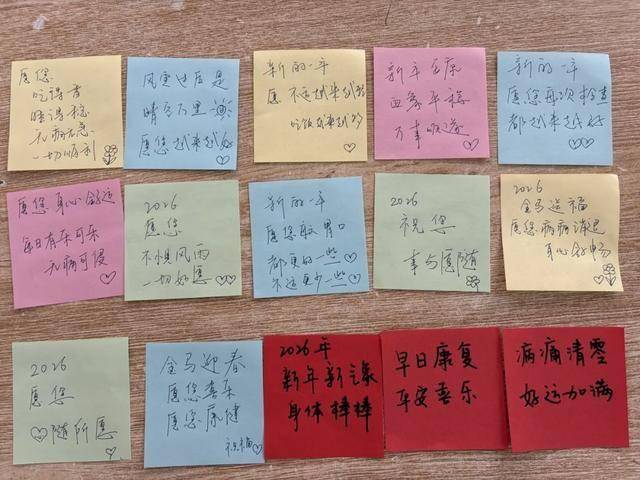 愿您
吃得香
睡得稳
无病无忧
一切顺利
风雪过后是
晴空万里
愿您越来越好
新的一年
愿不适越来越少
吃饭越来越多
新年安康
四季平稳
万事顺遂
新的一年
愿您每次检查
都越来越好
愿您身心舒适
每日有乐可乐
无病可侵
2026
愿您
不惧风雨
一切如愿
新的一年
愿您的胃口
都更好一些
不适更少一些
2026
祝您
事与愿随
2026
金马送福
愿您病痛消退
身心舒畅
2026
愿您
心随所愿
金马迎春
愿您喜乐
愿您康健
祝福
2026年
新年新气象
身体棒棒
早日康复
平安喜乐
病痛清零
好运加满